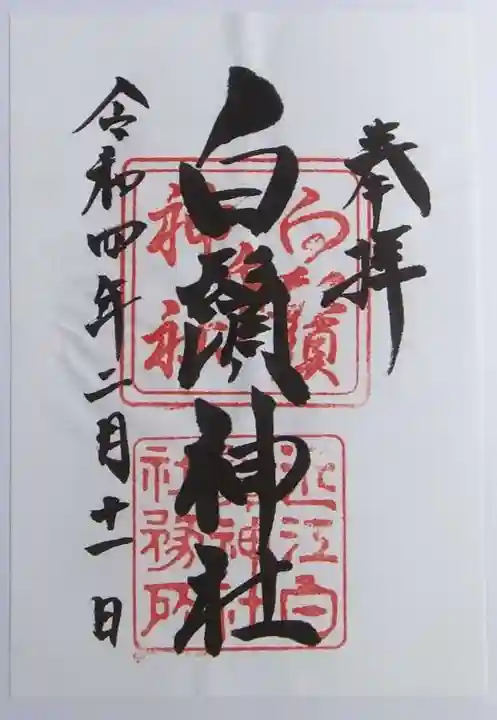 奉拝
白鬚神社
令和四年二月十一日
白鬚
神社
近江白
鬚神社
社務所